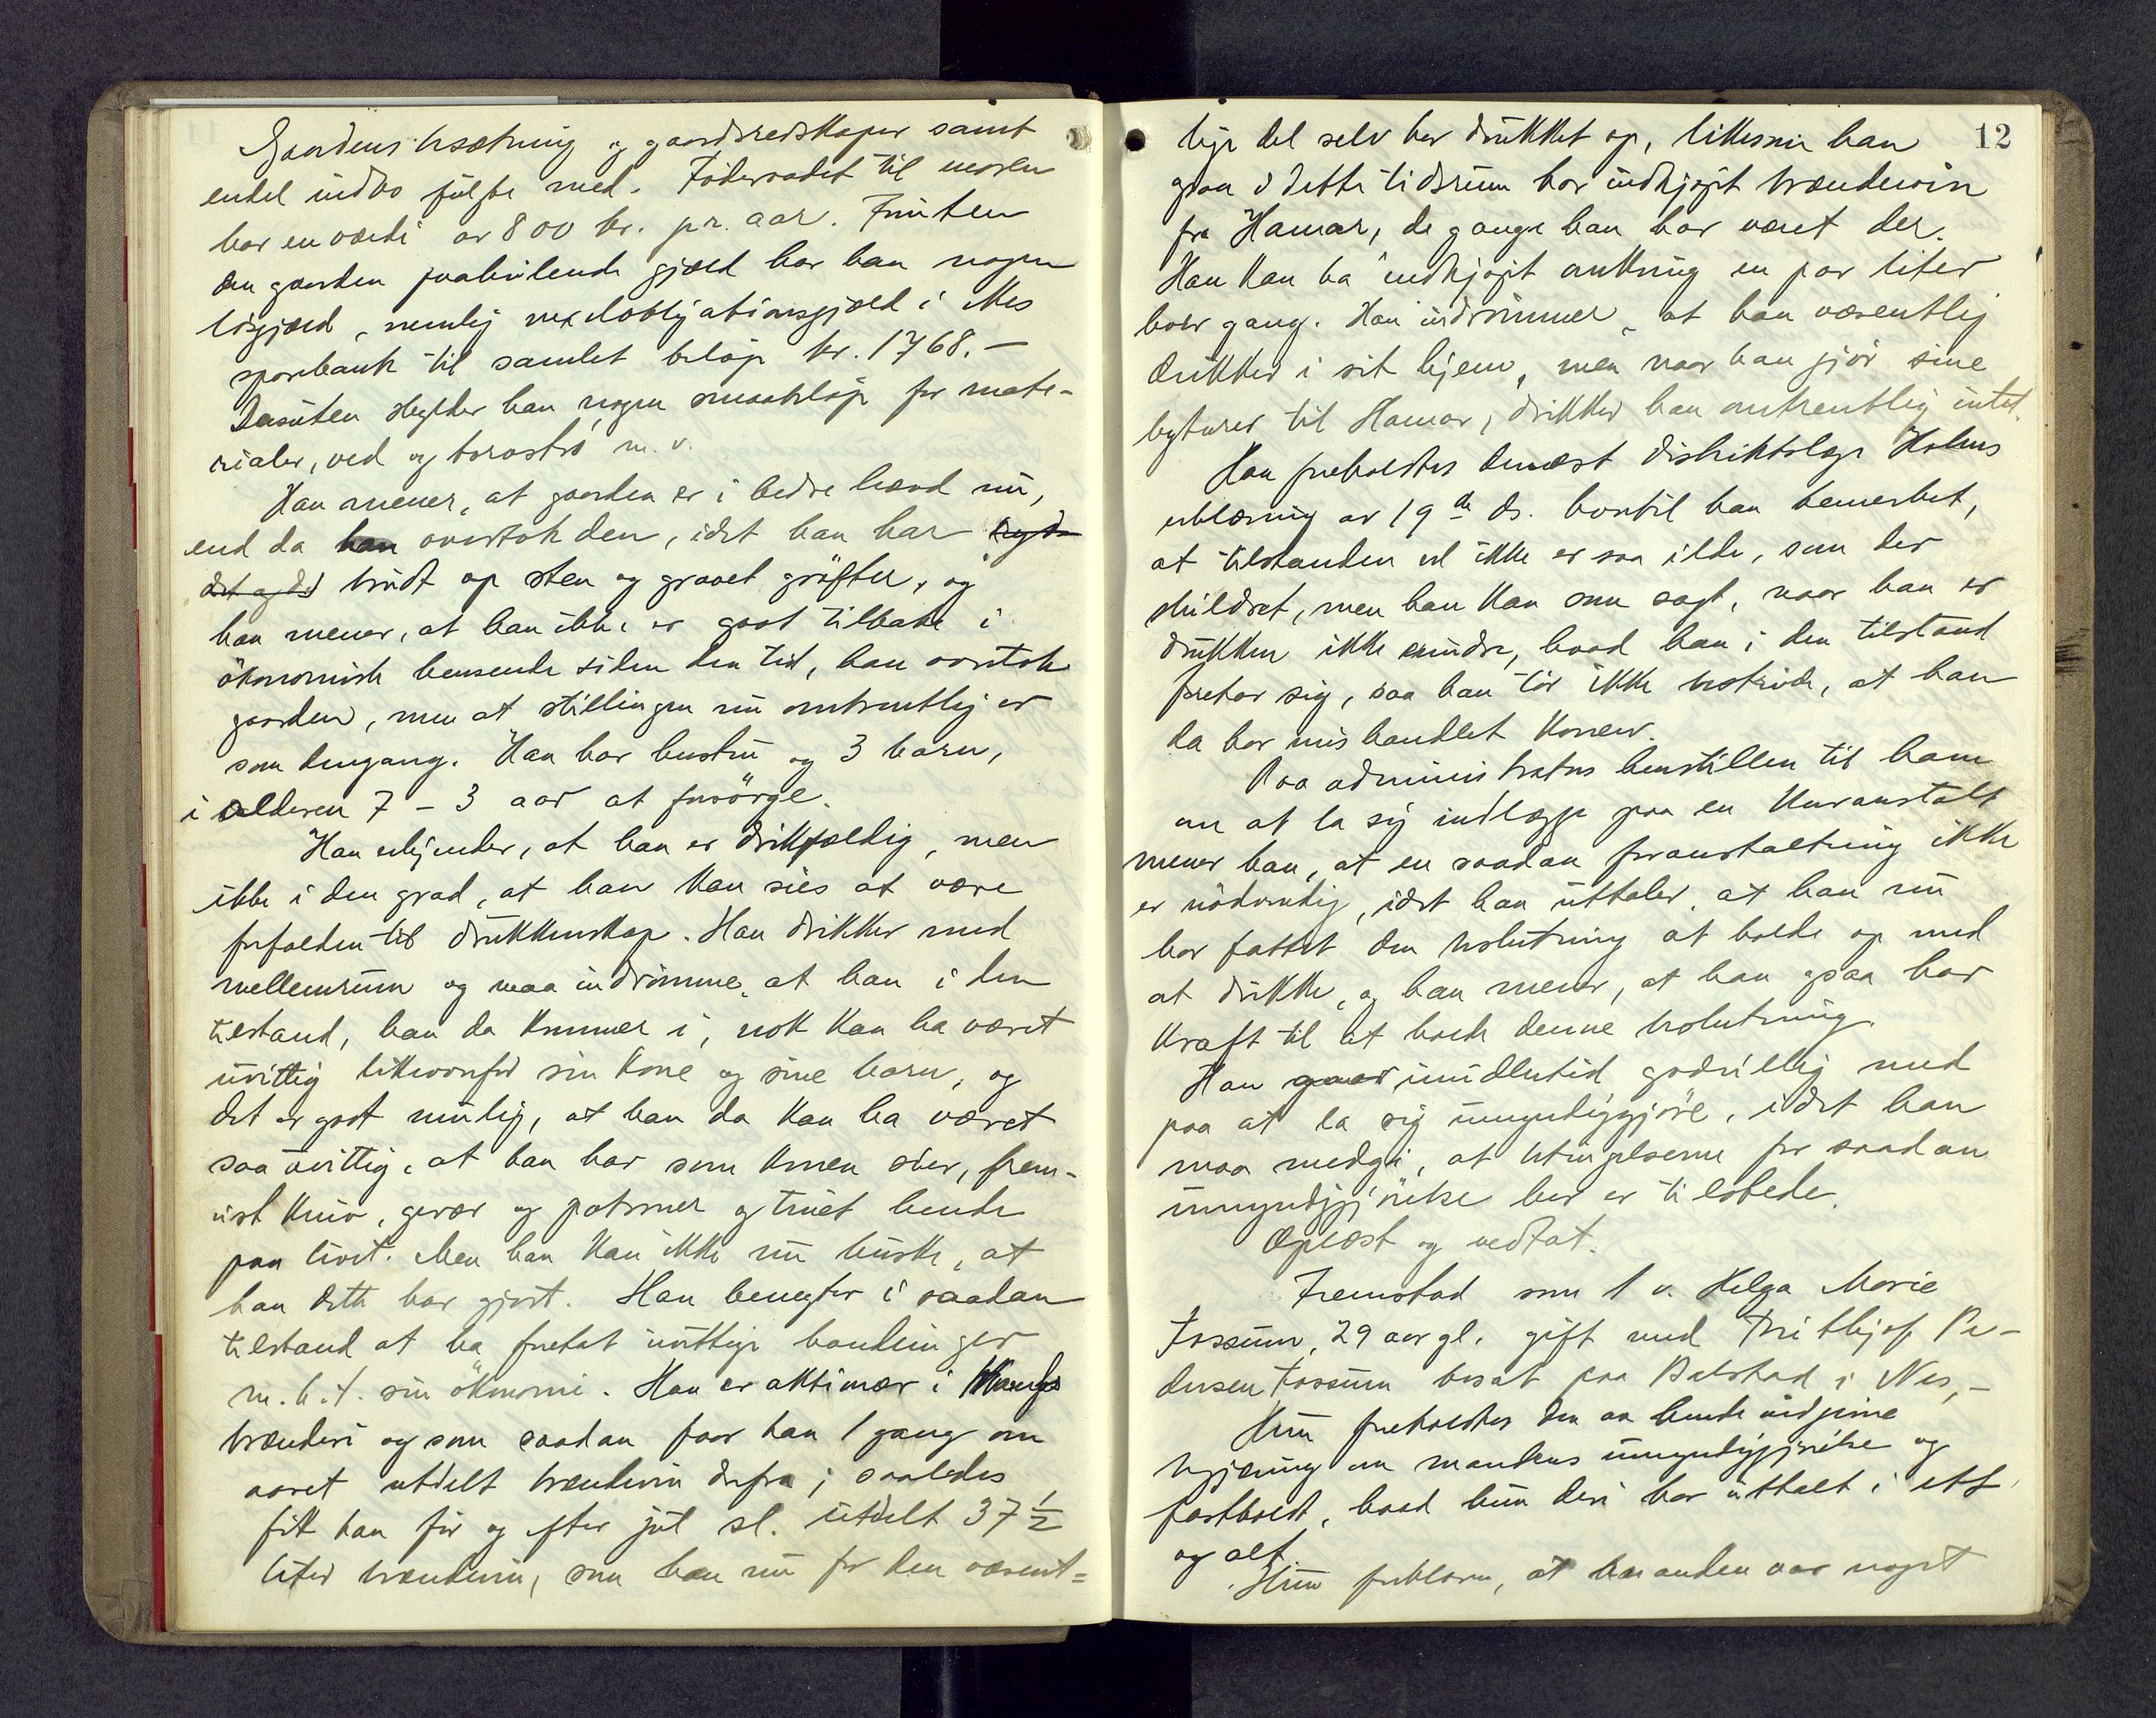 Gaardens besætning og gaardsredskaper samt
endel indbo fulgte med. Föderaadet til moren
har en værdi av 800 kr. pr. aar. Foruten
den gaarden paahvilende gjæld har han nogen
lösgjæld, nemlig vexelobligationsgjæld i Nes
sparebank til samlet belöp kr. 1768.-
Desuten skylder han nogen smaabelöp for mate-
rialer, ved og torvströ m. v.
Han mener, at gaarden er i bedre hævd nu,
end da han overtok den, idet han har
brudt op sten og gravet gröfter, og
han mener, at han ikke er gaat tilbake i
ökonomisk henseende siden den tid, han overtok
gaarden, men at stillingen nu omtrentlig er
som dengang. Han har hustru og 3 barn,
i alderen 7 - 3 aar at forsörge.
Han erkjender, at han er drikfældig, men
ikke i den grad, at han kan sies at være
forfalden til drukkenskap. Han drikker med
mellemrum og maa indrömme, at han i den
tilstand, han da kommer i, nok kan ha været
uvittig likeoverfor sin kone og sine barn, og
det er godt mulig, at han da kan ha været
saa uvittig, at han har som konen sier, frem-
vist kniv, gevær og patroner og truet hende
paa livet. Men han kan ikke nu huske, at
han dette har gjort. Han benegter i saadan
tilstand at ha foretat uvittige handlinger
m. h. t. sin ökonomi. Han er aktionær i
brænderi og som saadan faar han 1 gang om
aaret utdelt brændevin derfra; saaledes
fik han för og efter jul sl. utdelt 37 1/2
liter brændevin, som han nu for den væsent=
12
lige del selv har drukket op, likesom han
ogsaa i dette tidsrum har indkjøpt brændevin
fra Hamar, de gange han har været der.
Han kan ha indkjøpt omkring en par liter
hver gang. Han indrömmer, at han væsentlig
drikker i sit hjem, men naar han gjör sine
byturer til Hamar, drikker han omtrentlig intet.
Han foreholdtes dernæst distriktslæge Holms
erklæring av 19de ds. hvortil han bemerket,
at tilstanden vel ikke er saa ilde, som der
skildret, men han kan som sagt, naar han er
drukken ikke erindre, hvad han i den tilstand
foretar sig, saa han tör ikke bestride, at han
da har mishandlet konen.
Paa administrators henstillen til ham
om at la sig indlægge paa en kuranstalt
mener han, at en saadan foranstaltning ikke
er nödvendig, idet han uttaler, at han nu
har fattet den beslutning at holde op med
at drikke, og han mener, at han ogsaa har
kraft til at holde denne beslutning.
Han gaar imidlertid godvillig med
paa at la sig umyndiggjöre, idet han
maa medgi, at betingelserne for saadan
umyndiggjörelse her er tilstede.
Oplæst og vedtat.
Fremstod som 1 v. Helga Marie
Fossum, 29 aar gl. gift med Frithjof Pe-
dersen Fossum bosat paa Balstad i Nes,-
Hun foreholdtes den av hende indgivne
begjæring om mandens umyndiggjörelse og
fastholdt, hvad hun deri har uttalt i ett
og alt.
Hun forklarer, at manden var noget